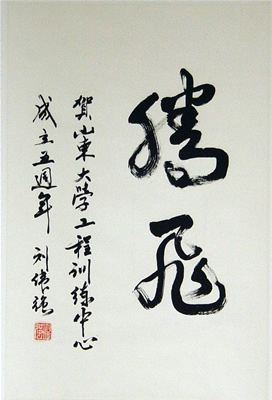 腾飞
贺山东大学工程训练中心
成立五週年 刘伟强